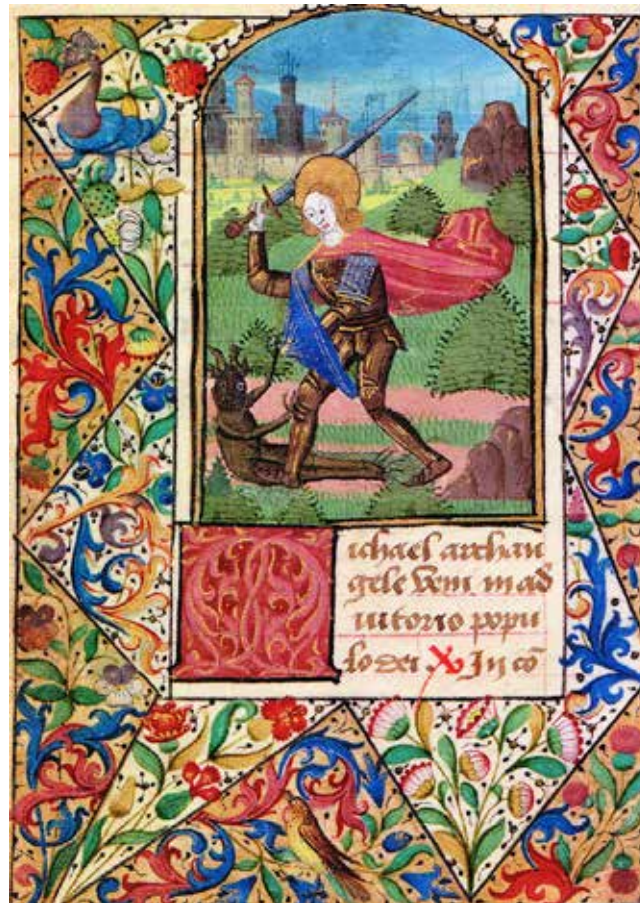 Michael archan
gele veni in ad
iutorio popu
lo dei V In cō